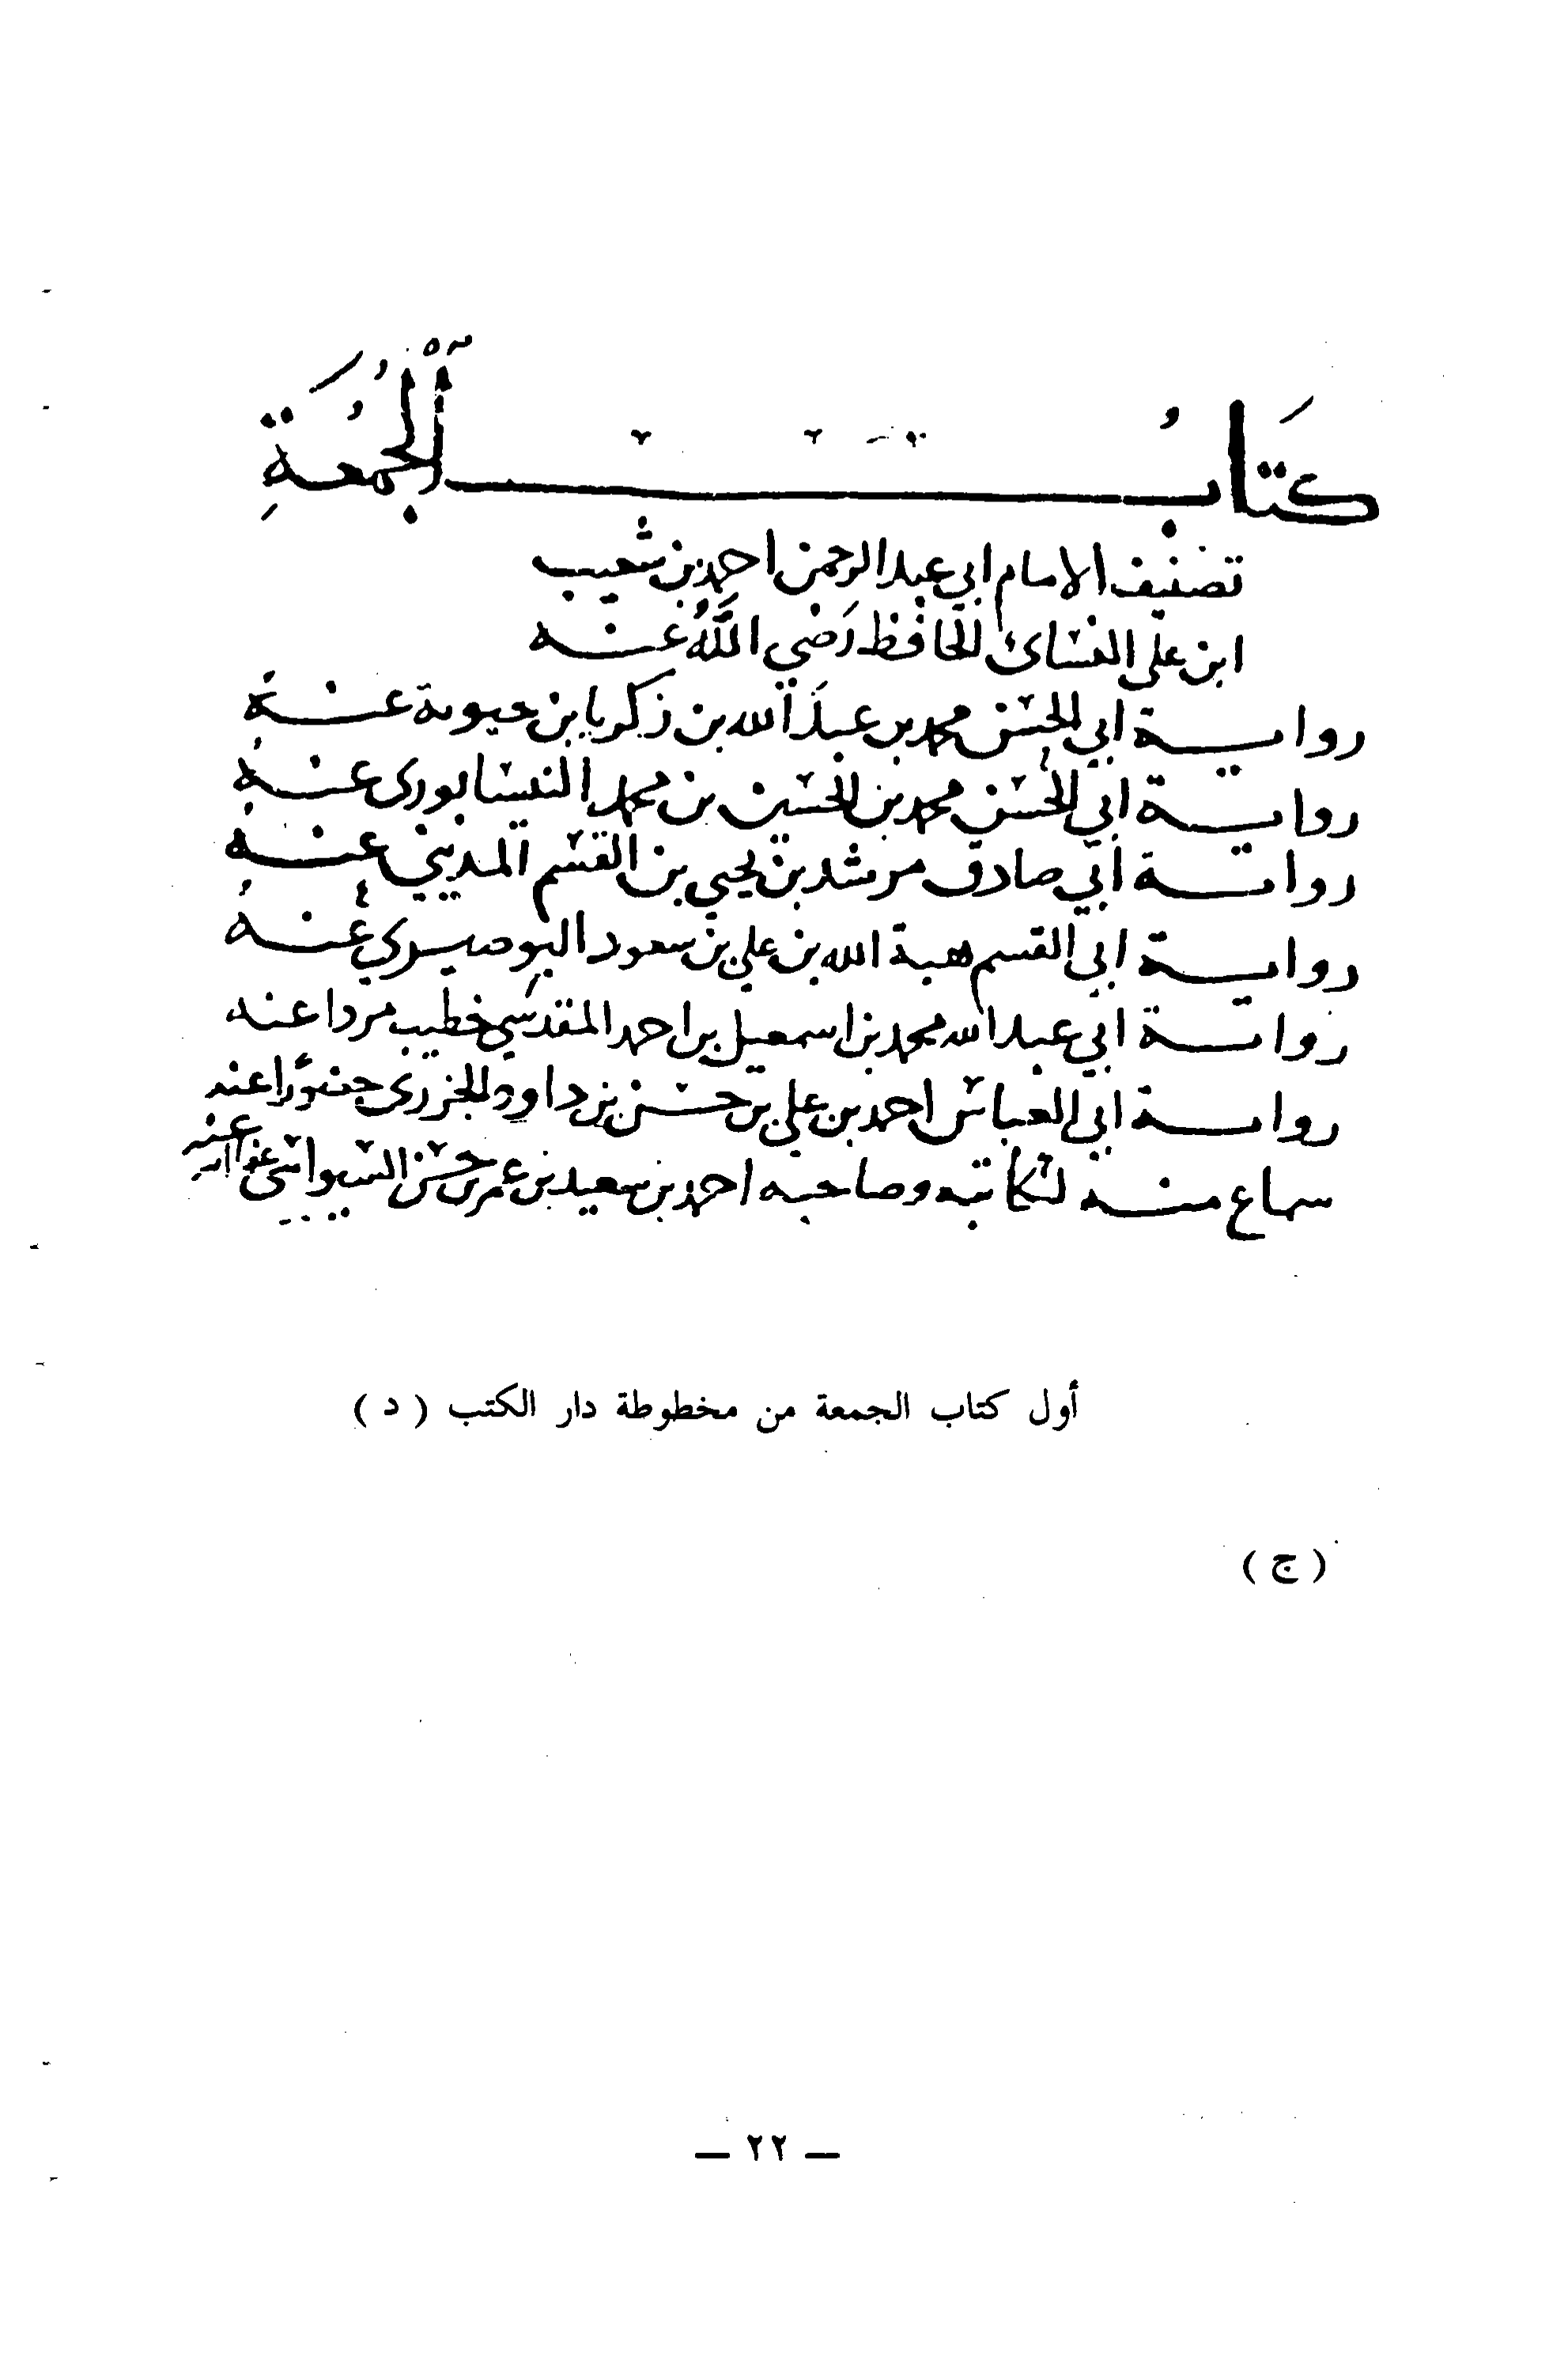 كتَابُ الْجُمُعَةِ
تصنيف الامام ابي عبد الرحمن احمد بن شعيب
ابن علي النسائ الحافظ رَضي اللَّهُ عنه
رواية ابي الحسن محمد بن عبد الله بن زكريا بن حيوية عنهُ
رواية ابي الحسن محمد بن الحسين بن محمد النيسابورى عنهُ
رواية ابي صادق مرشد بن يحيي بن القسم المديني عنهُ
رواية ابي القسم هبة الله بن علي بن سعود البوصيري عنهُ
رواية ابي عبد الله محمد بن اسمعيل بن احمد المقدسي خطيب مردا عنه
رواية ابي العباس احمد بن علي بن حسن بن داود الجزرى حضورًا عنه
سماع منه لكاتبه وصاحبه احمد بن سعيد بن عمر بن حسن السيواسي عفا الله عنه
أول كتاب الجمعة من مخطوطة دار الكتب ( د )
( ج )
— ٢٢ —